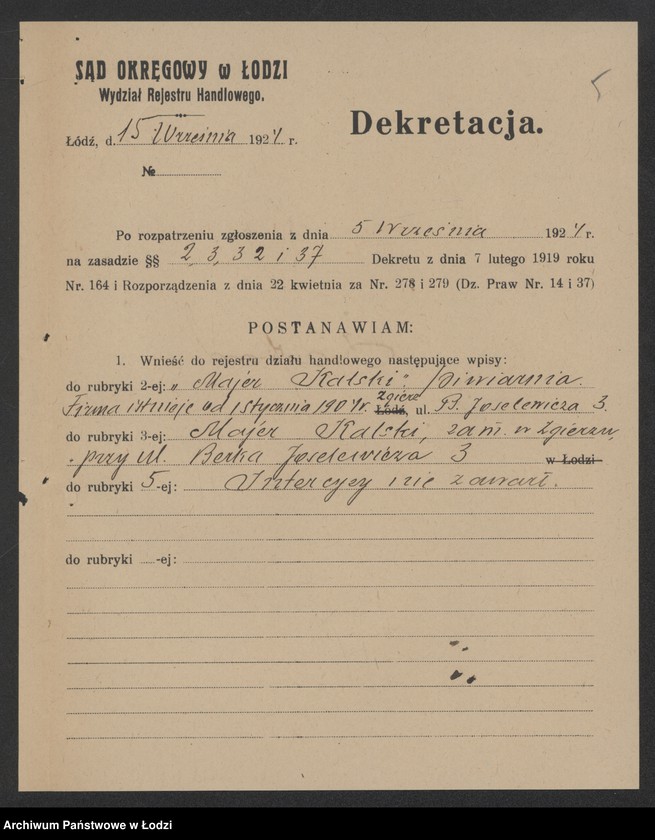 SĄD OKRĘGOWY w ŁODZI
Wydział Rejestru Handlowego.
5
Łódź, d. 15 Września 1924 r.
Dekretacja.
№
Po rozpatrzeniu zgłoszenia z dnia 5 Września 1924 r.
na zasadzie §§ 2, 3, 32 i 37 Dekretu z dnia 7 lutego 1919 roku
Nr. 164 i Rozporządzenia z dnia 22 kwietnia za Nr. 278 i 279 (Dz. Praw Nr. 14 i 37)
POSTANAWIAM:
1. Wnieść do rejestru działu handlowego następujące wpisy:
do rubryki 2-ej: „Majer Kalski" piwiarnia.
Firma istnieje od 1 stycznia 1904 r. Łódź, Zgierz ul. B. Joselewicza 3.
do rubryki 3-ej: Majer Kalski, zam. w Zgierzu,
przy ul. Berka Joselewicza 3 w Łodzi
do rubryki 5-ej: Intercyzy nie zawarł.
do rubryki -ej:
Archiwum Państwowe w Łodzi